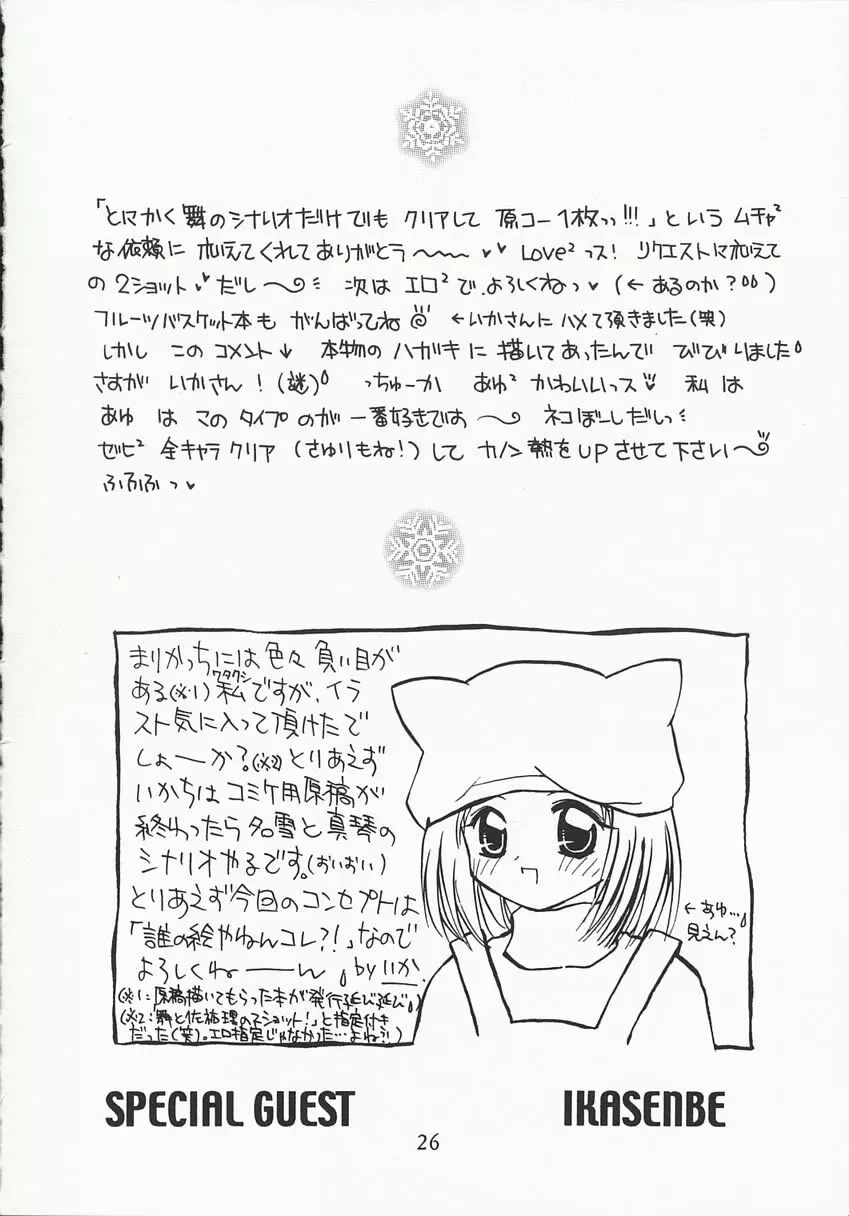 「とにかく舞のシナリオだけでも クリアして 原コー1枚っっ!!!」という ムチャ²
な依頼に 応えてくれてありがとう〜〜♥♥ LOVE²っス! リクエストに応えて
の2ショット♥だし〜 次は エロ²で、よろしくねっ♥(←あるのか?)
フルーツバスケット本も がんばってね ←いかさんに ハメて頂きました(笑)
しかし この コメント↓ 本物の ハガキに描いてあったんで びびりました
さすが いかさん!(謎) っちゅーか あゆ² かわいいっス♥ 私は
あゆ は このタイプのが 一番好きです〜 ネコぼーしだしっ
ゼヒ² 全キャラクリア (さゆりもね!)して カノン熱をUPさせて下さい〜
ふふふっ♥
まりかっちには色々負い目が
ある(※1)私ワタクシですが、イラ
スト気に入って頂けたで
しょーか?(※2)とりあえず
いかちはコミケ用原稿が
終わったら名雪と真琴の
シナリオやるです。(おいおい)
とりあえず今回のコンセプトは
「誰の絵やねんコレ?!」なので
よろしくねーーん by いか
(※1:原稿描いてもらった本が発行延び延び)
(※2:舞と佐祐理の2ショット!」と指定付き
だった(笑)。エロ指定じゃなかった…よね?!)
←あゆ…
見えん?
SPECIAL GUEST IKASENBE
26